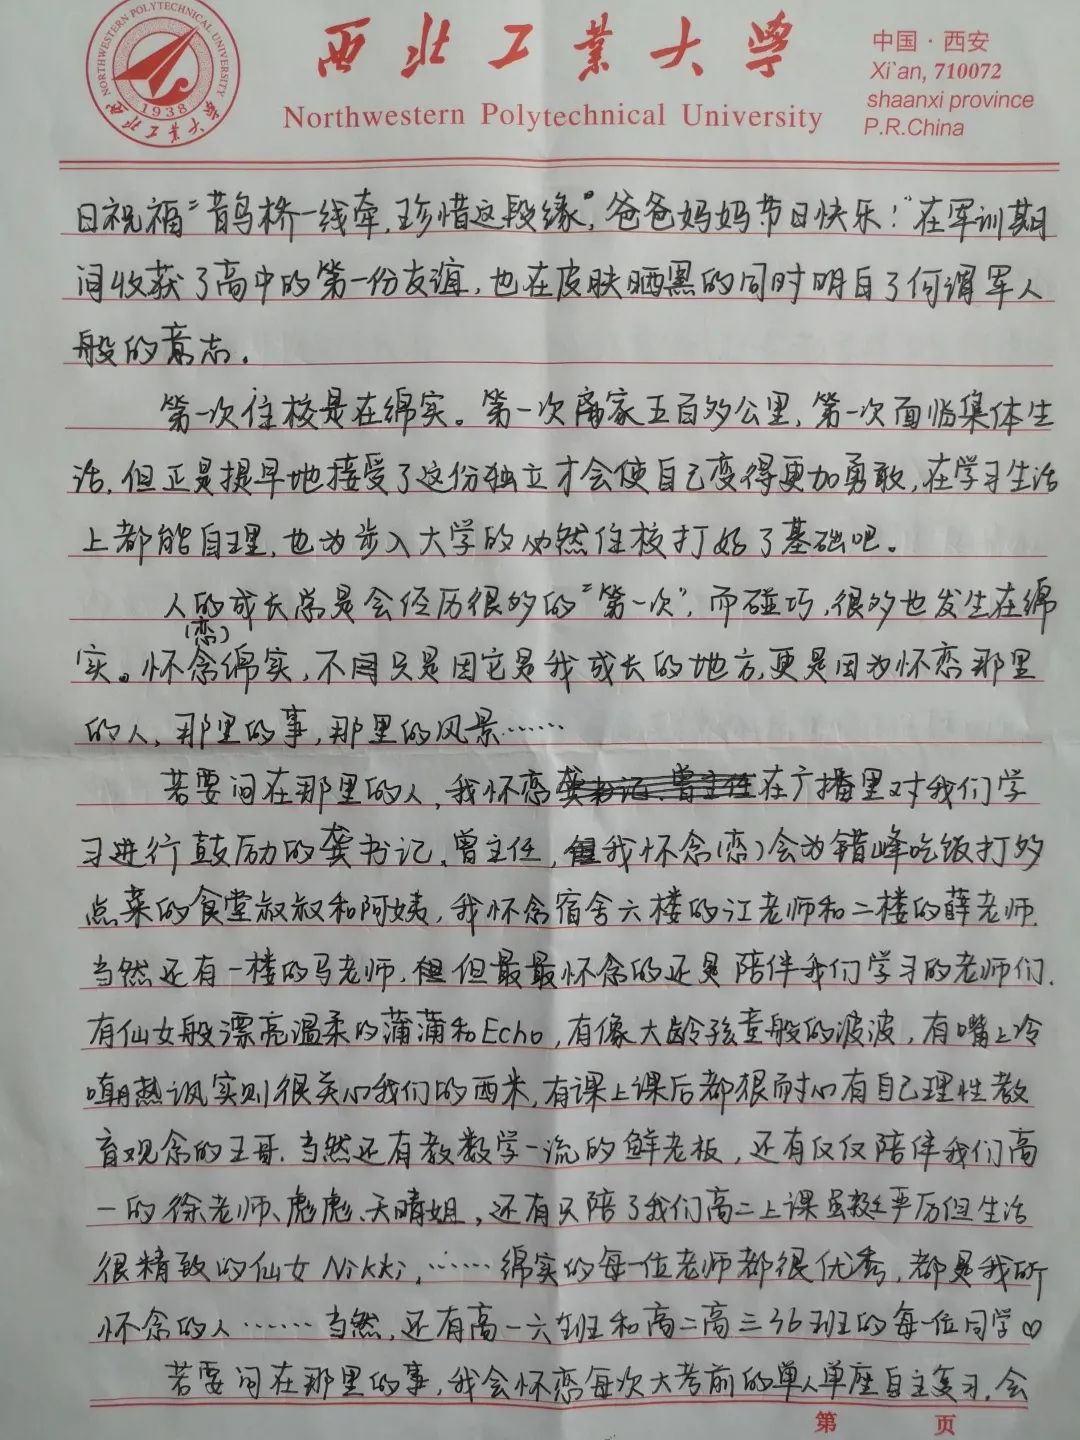 西北工业大学
Northwestern Polytechnical University
中国·西安
Xi'an, 710072
shaanxi province
P.R.China
NORTHWESTERN POLYTECHNICAL UNIVERSITY
1938
西北工业大学
日祝福“鹊桥一线牵,珍惜这段缘”,爸爸妈妈节日快乐!”在军训期
间收获了高中的第一份友谊,也在皮肤晒黑的同时明白了何谓军人
般的意志.
第一次住校是在绵实。第一次离家五百多公里,第一次面临集体生
活,但正是提早地接受了这份独立才会使自己变得更加勇敢,在学习生活
上都能自理,也为步入大学的必然住校打好了基础吧。
人的成长总是会经历很多的“第一次”,而碰巧,很多也发生在绵
(恋)
实。怀念绵实,不只是因它是我成长的地方,更是因为怀恋那里
的人,那里的事,那里的风景……
若要问在那里的人,我怀恋龚书记、曾主任在广播里对我们学
习进行鼓励的龚书记、曾主任,我怀念(恋)会为错峰吃饭打多
点菜的食堂叔叔和阿姨,我怀念宿舍六楼的江老师和二楼的薛老师.
当然还有一楼的马老师,但最最怀念的还是陪伴我们学习的老师们.
有仙女般漂亮温柔的蒲蒲和Echo,有像大龄孩童般的波波,有嘴上冷
嘲热讽实则很关心我们的西米,有课上课后都很耐心有自己理性教
育观念的王哥.当然还有教数学一流的鲜老板,还有仅仅陪伴我们高
一的徐老师、彪彪、天晴姐,还有只陪了我们高二上课虽挺严厉但生活
很精致的仙女Nikki,……绵实的每一位老师都很优秀,都是我所
怀念的人……当然,还有高一六班和高二高三36班的每一位同学♡
若要问在那里的事,我会怀恋每次大考前的单人单座自主复习,会
第 页